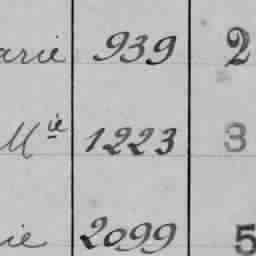 arie 939 2
Mie 1223 3
ie 2099 5